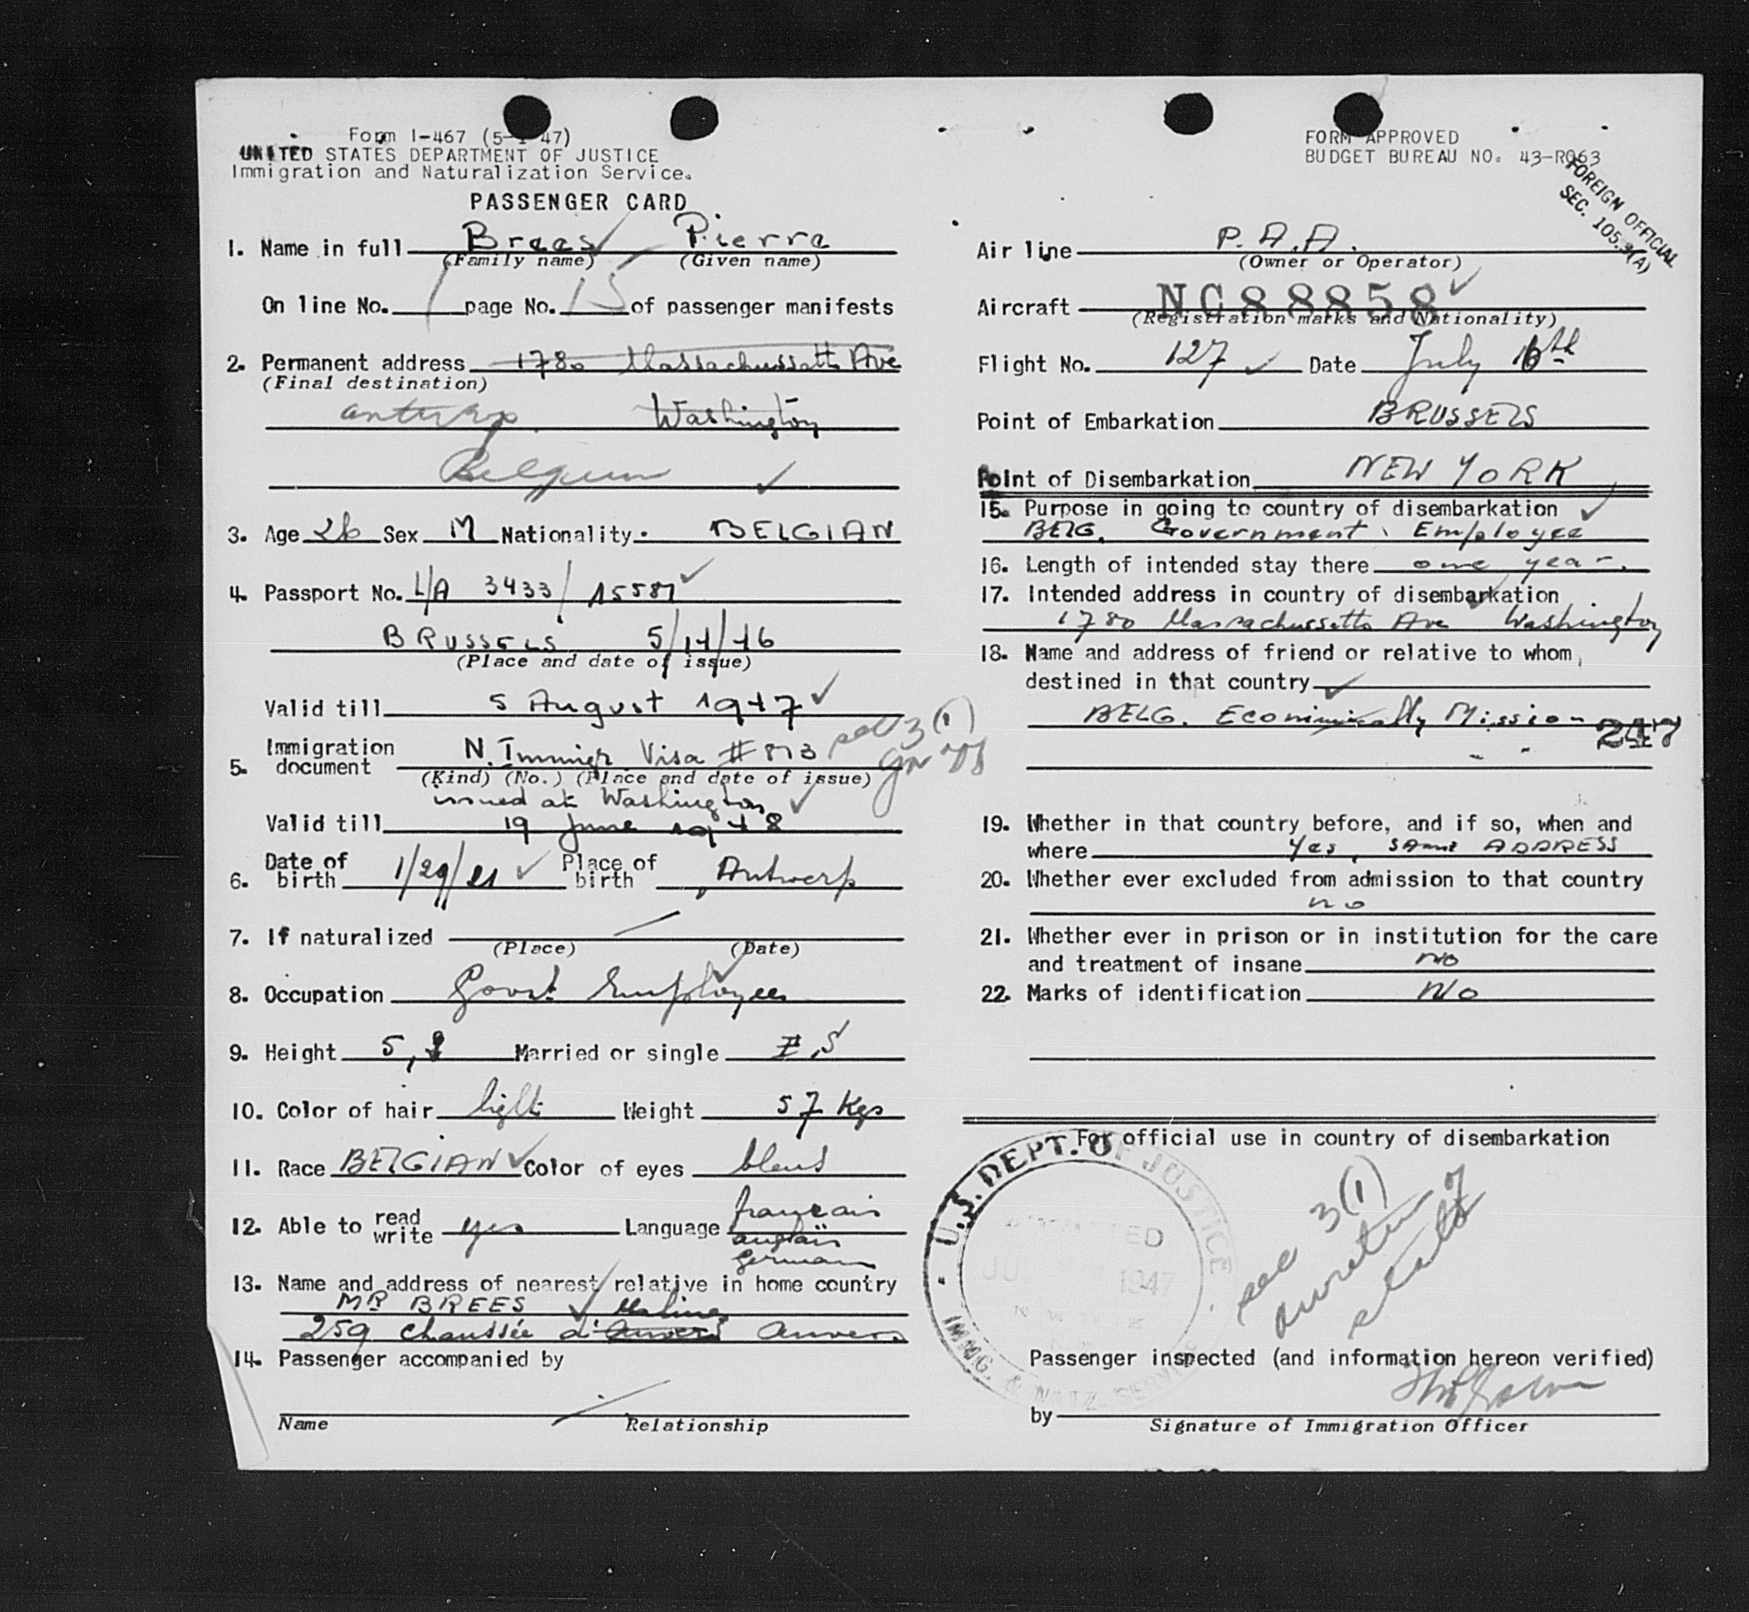 Form I-467 (5-1-47)
UNITED STATES DEPARTMENT OF JUSTICE
Immigration and Naturalization Service.
PASSENGER CARD
1. Name in full Brees Pierre
(Family name) (Given name)
On line No. 1 page No. 15 of passenger manifests
2. Permanent address 1780 Massachussetts Ave
(Final destination)
Antwerp. Washington
Belgium
3. Age 26 Sex M Nationality. BELGIAN
4. Passport No. L/A 3433/15587
BRUSSELS 5/14/46
(Place and date of issue)
Valid till 5 August 1947
5. Immigration document N. Immigr Visa # 873 sec 3(1)
(Kind) (No.) (Place and date of issue)
issued at Washington
Valid till 19 June 1948
6. Date of birth 1/29/21 Place of birth Antwerp
7. If naturalized
(Place) (Date)
8. Occupation Govt Employee
9. Height 5, Married or single S
10. Color of hair light Weight 57 Kgs
11. Race BELGIAN Color of eyes bleus
12. Able to read write yes Language français
anglais
german
13. Name and address of nearest relative in home country
MR BREES Malines
259 Chaussée d'Anvers Anvers
14. Passenger accompanied by
Name Relationship
FORM APPROVED
BUDGET BUREAU NO. 43-R063
FOREIGN OFFICIAL
SEC. 105.3(A)
Air line P.A.A.
(Owner or Operator)
Aircraft NC88858
(Registration marks and Nationality)
Flight No. 127 Date July 16th
Point of Embarkation BRUSSELS
Point of Disembarkation NEW YORK
15. Purpose in going to country of disembarkation
BELG. Government Employee
16. Length of intended stay there one year.
17. Intended address in country of disembarkation
1780 Massachussetts Ave Washington
18. Name and address of friend or relative to whom,
destined in that country
BELG. Economically Mission
247
19. Whether in that country before, and if so, when and
where Yes, SAME ADDRESS
20. Whether ever excluded from admission to that country
no
21. Whether ever in prison or in institution for the care
and treatment of insane No
22. Marks of identification No
For official use in country of disembarkation
U.S. DEPT. OF JUSTICE
ADMITTED
1947
IMMIG. & NATZ. SERVICE
sec 3(1)
duration of
status
Passenger inspected (and information hereon verified)
by
Signature of Immigration Officer